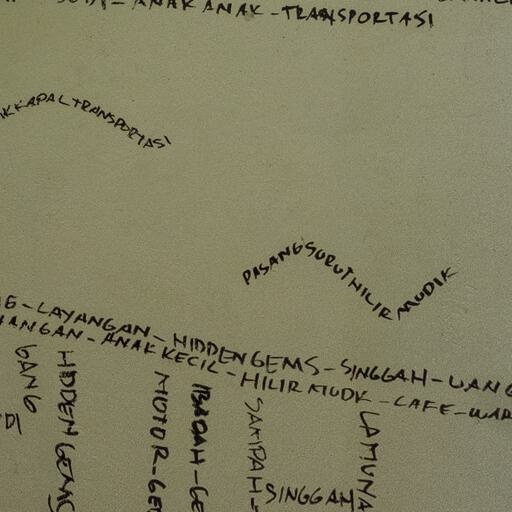 ANAK ANAK - TRANSPORTASI
KAPAL TRANSPORTASI
PASANG SURUT HILIR MUDIK
G - LAYANGAN - HIDDEN GEMS - SINGGAH - UANG
ANGAN - ANAK KECIL - HILIR MUDK - CAFE - WAR
GANG
HIDDEN GEMS
MOTOR - GE
IBADAH - GE
SAMPAH -
SINGGAH
LAMUNA